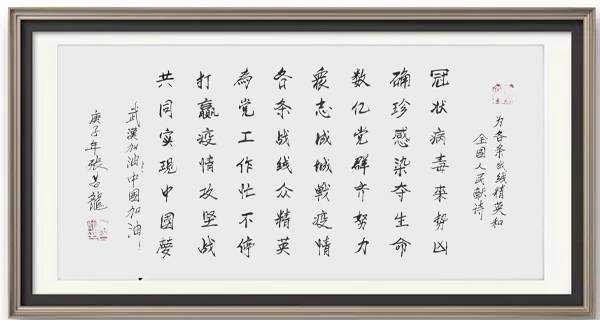 为各条战线精英和
全國人民献诗
冠状病毒來势凶
确珍感染夺生命
数亿党群齐努力
衆志成城戰疫情
各条战线众精英
為党工作忙不停
打赢疫情攻坚战
共同实现中國夢
武漢加油!中國加油!
庚子年張昌龍